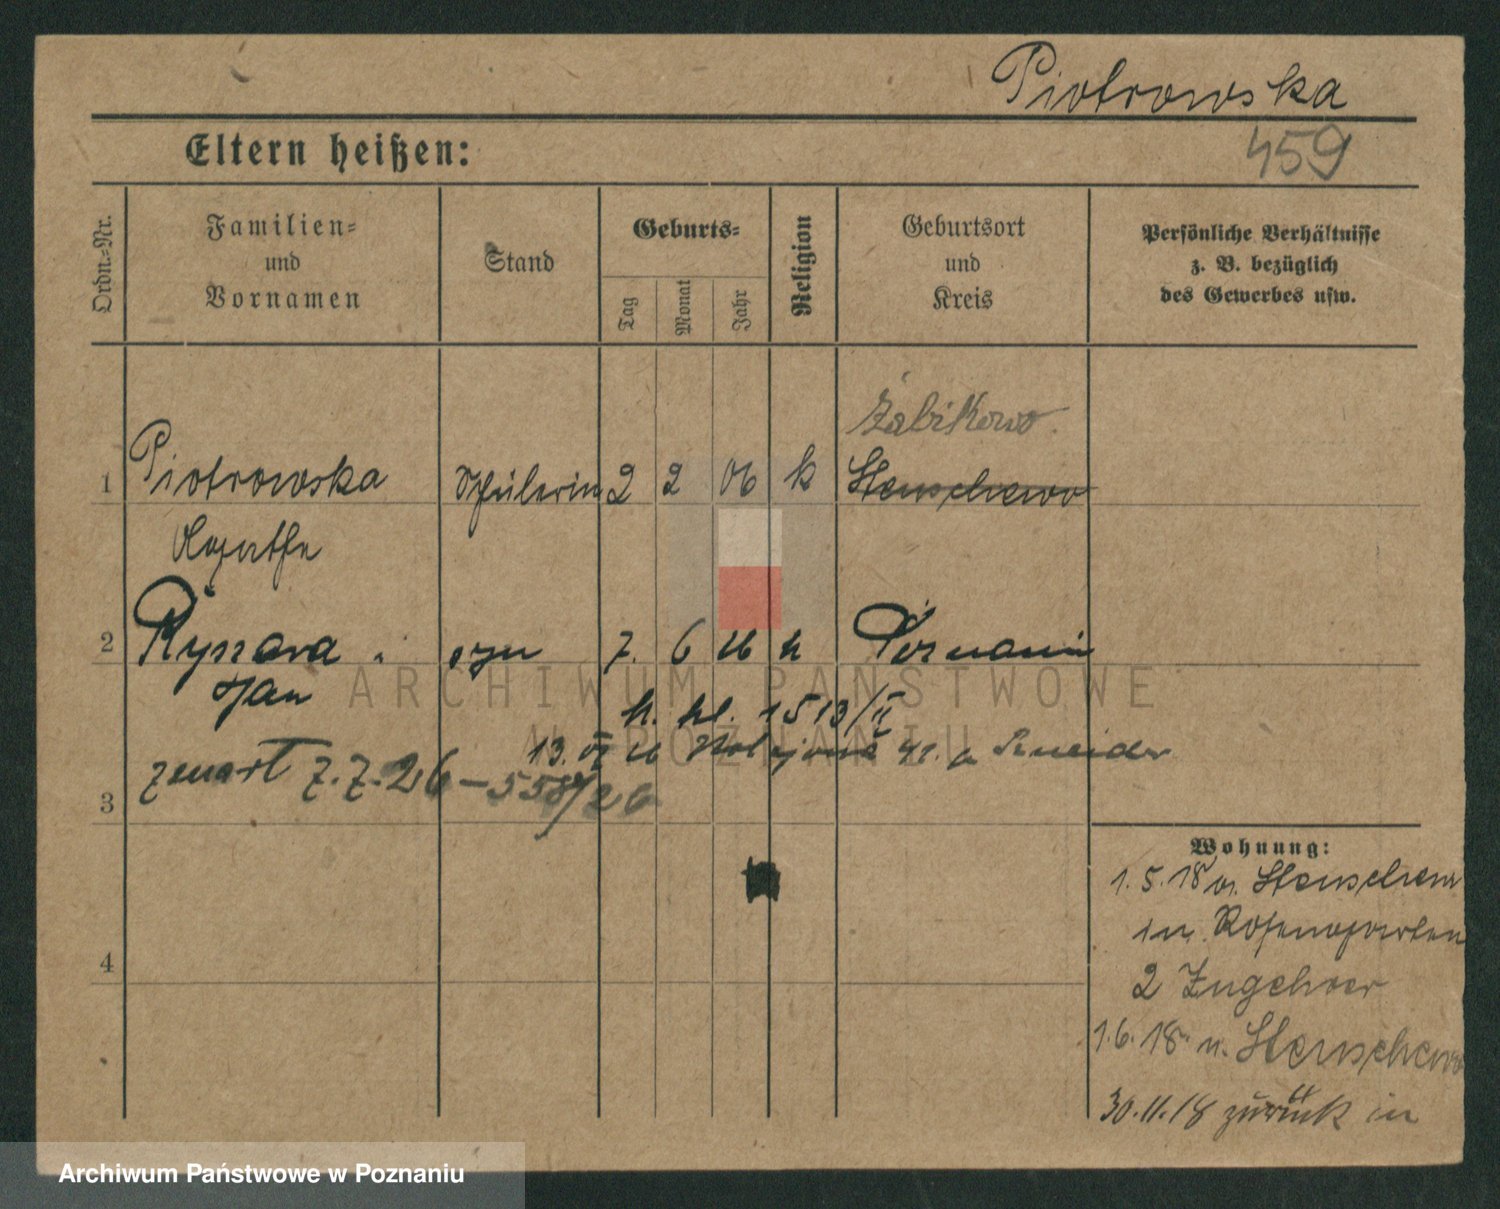 Piotrowska
459
Eltern heißen:
Ordn.-Nr.
Familien-
und
Vornamen
Stand
Geburts-
Tag
Monat
Jahr
Religion
Geburtsort
und
Kreis
Persönliche Verhältnisse
z. B. bezüglich
des Gewerbes usw.
Żabikowo
1 Piotrowska Schülerin 2 2 06 k Stenschewo
Agathe
2 Ryszard syn 7. 6 26 k Poznań
Jan
k. kl. 1513/II
13. VI 26
zmarł 7.7.26 – 558/26
3
Wohnung:
1.5.18 v. Stenschewo
in Rosengarten
2
4
1.6.18 n. Stenschewo
30.11.18 zurück in
ARCHIWUM PAŃSTWOWE
W POZNANIU
Archiwum Państwowe w Poznaniu